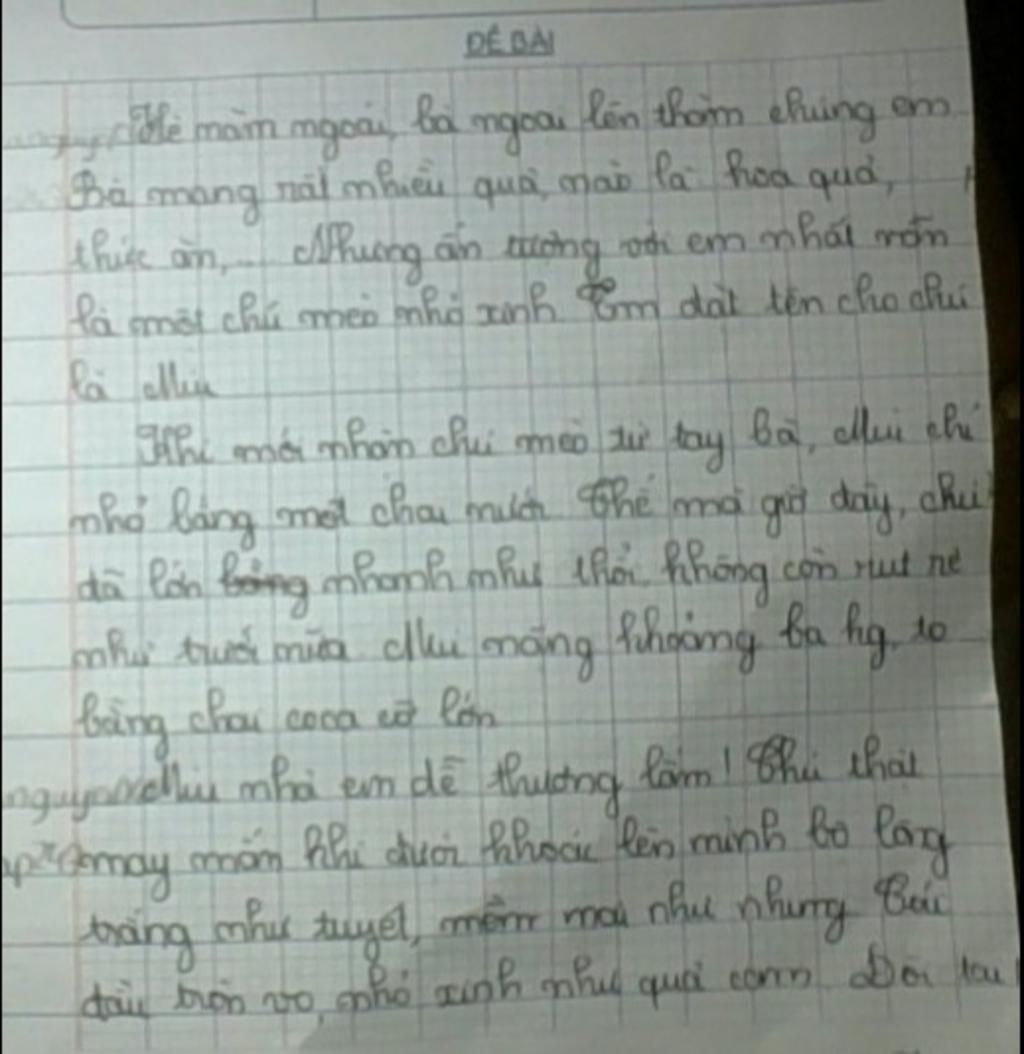 ĐỀ BÀI
Hè năm ngoái, bà ngoại lên thăm chúng em
Bà mang rất nhiều quà, nào là hoa quả,
thức ăn,... Nhưng ấn tượng với em nhất vẫn
là một chú mèo nhỏ xinh Em đặt tên cho chú
là Miu
Khi mới nhận chú mèo từ tay bà, Miu chỉ
nhỏ bằng một chai nước Thế mà giờ đây, chú
đã lớn nhanh như thổi không còn rụt rè
như trước nữa Miu nặng khoảng ba kg, to
bằng chai coca cỡ lớn
Miu nhà em dễ thương lắm! Chú thật
may mắn khi được khoác lên mình bộ lông
trắng như tuyết, mềm mại như nhung Cái
đầu tròn vo, nhỏ xinh như quả cam Đôi tai